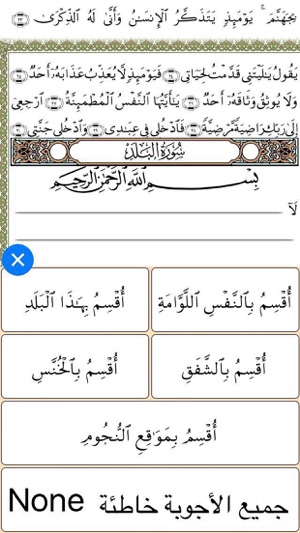 بِجَهَنَّمَ ۚ يَوْمَئِذٍ يَتَذَكَّرُ ٱلْإِنسَٰنُ وَأَنَّىٰ لَهُ ٱلذِّكْرَىٰ ٢٣
يَقُولُ يَٰلَيْتَنِى قَدَّمْتُ لِحَيَاتِى ٢٤ فَيَوْمَئِذٍ لَّا يُعَذِّبُ عَذَابَهُۥٓ أَحَدٌ ٢٥
وَلَا يُوثِقُ وَثَاقَهُۥٓ أَحَدٌ ٢٦ يَٰٓأَيَّتُهَا ٱلنَّفْسُ ٱلْمُطْمَئِنَّةُ ٢٧ ٱرْجِعِىٓ
إِلَىٰ رَبِّكِ رَاضِيَةً مَّرْضِيَّةً ٢٨ فَٱدْخُلِى فِى عِبَٰدِى ٢٩ وَٱدْخُلِى جَنَّتِى ٣٠
سُورَةُ ٱلْبَلَدِ
بِسْمِ ٱللَّهِ ٱلرَّحْمَٰنِ ٱلرَّحِيمِ
لَآ
أُقْسِمُ بِٱلنَّفْسِ ٱللَّوَّامَةِ
أُقْسِمُ بِهَٰذَا ٱلْبَلَدِ
أُقْسِمُ بِٱلشَّفَقِ
أُقْسِمُ بِٱلْخُنَّسِ
أُقْسِمُ بِمَوَٰقِعِ ٱلنُّجُومِ
جميع الأجوبة خاطئة None